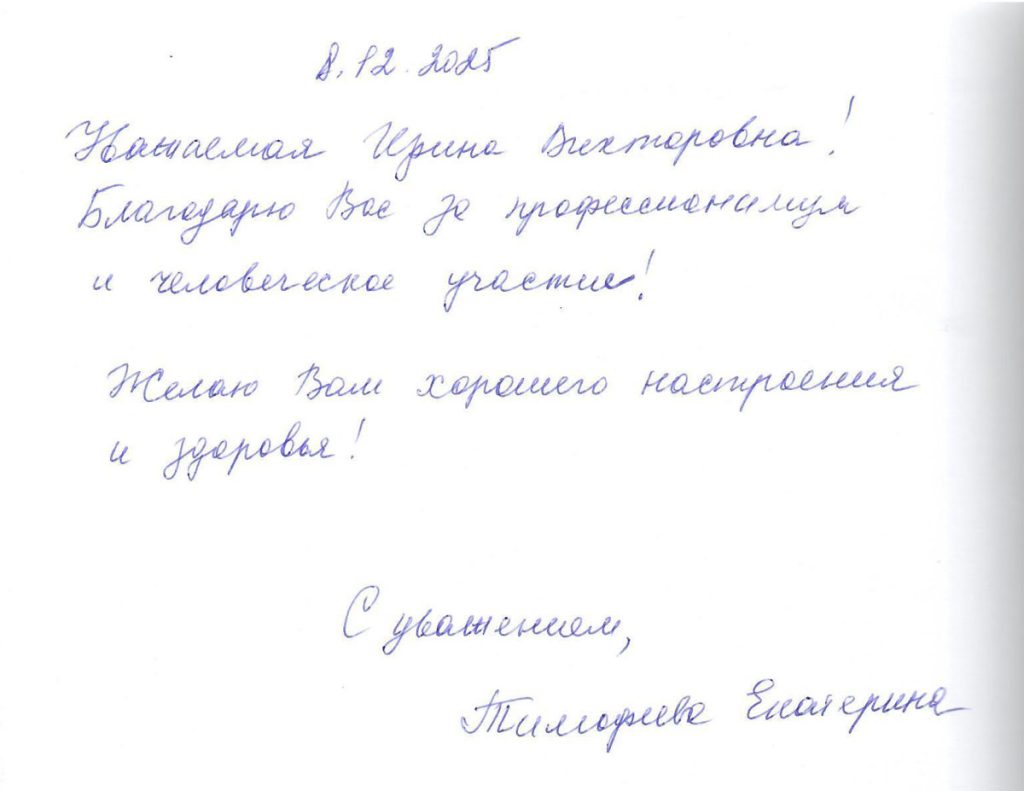 8.12.2025
Уважаемая Ирина Викторовна!
Благодарю Вас за профессионализм
и человеческое участие!
Желаю Вам хорошего настроения
и здоровья!
С уважением,
Тимофеева Екатерина